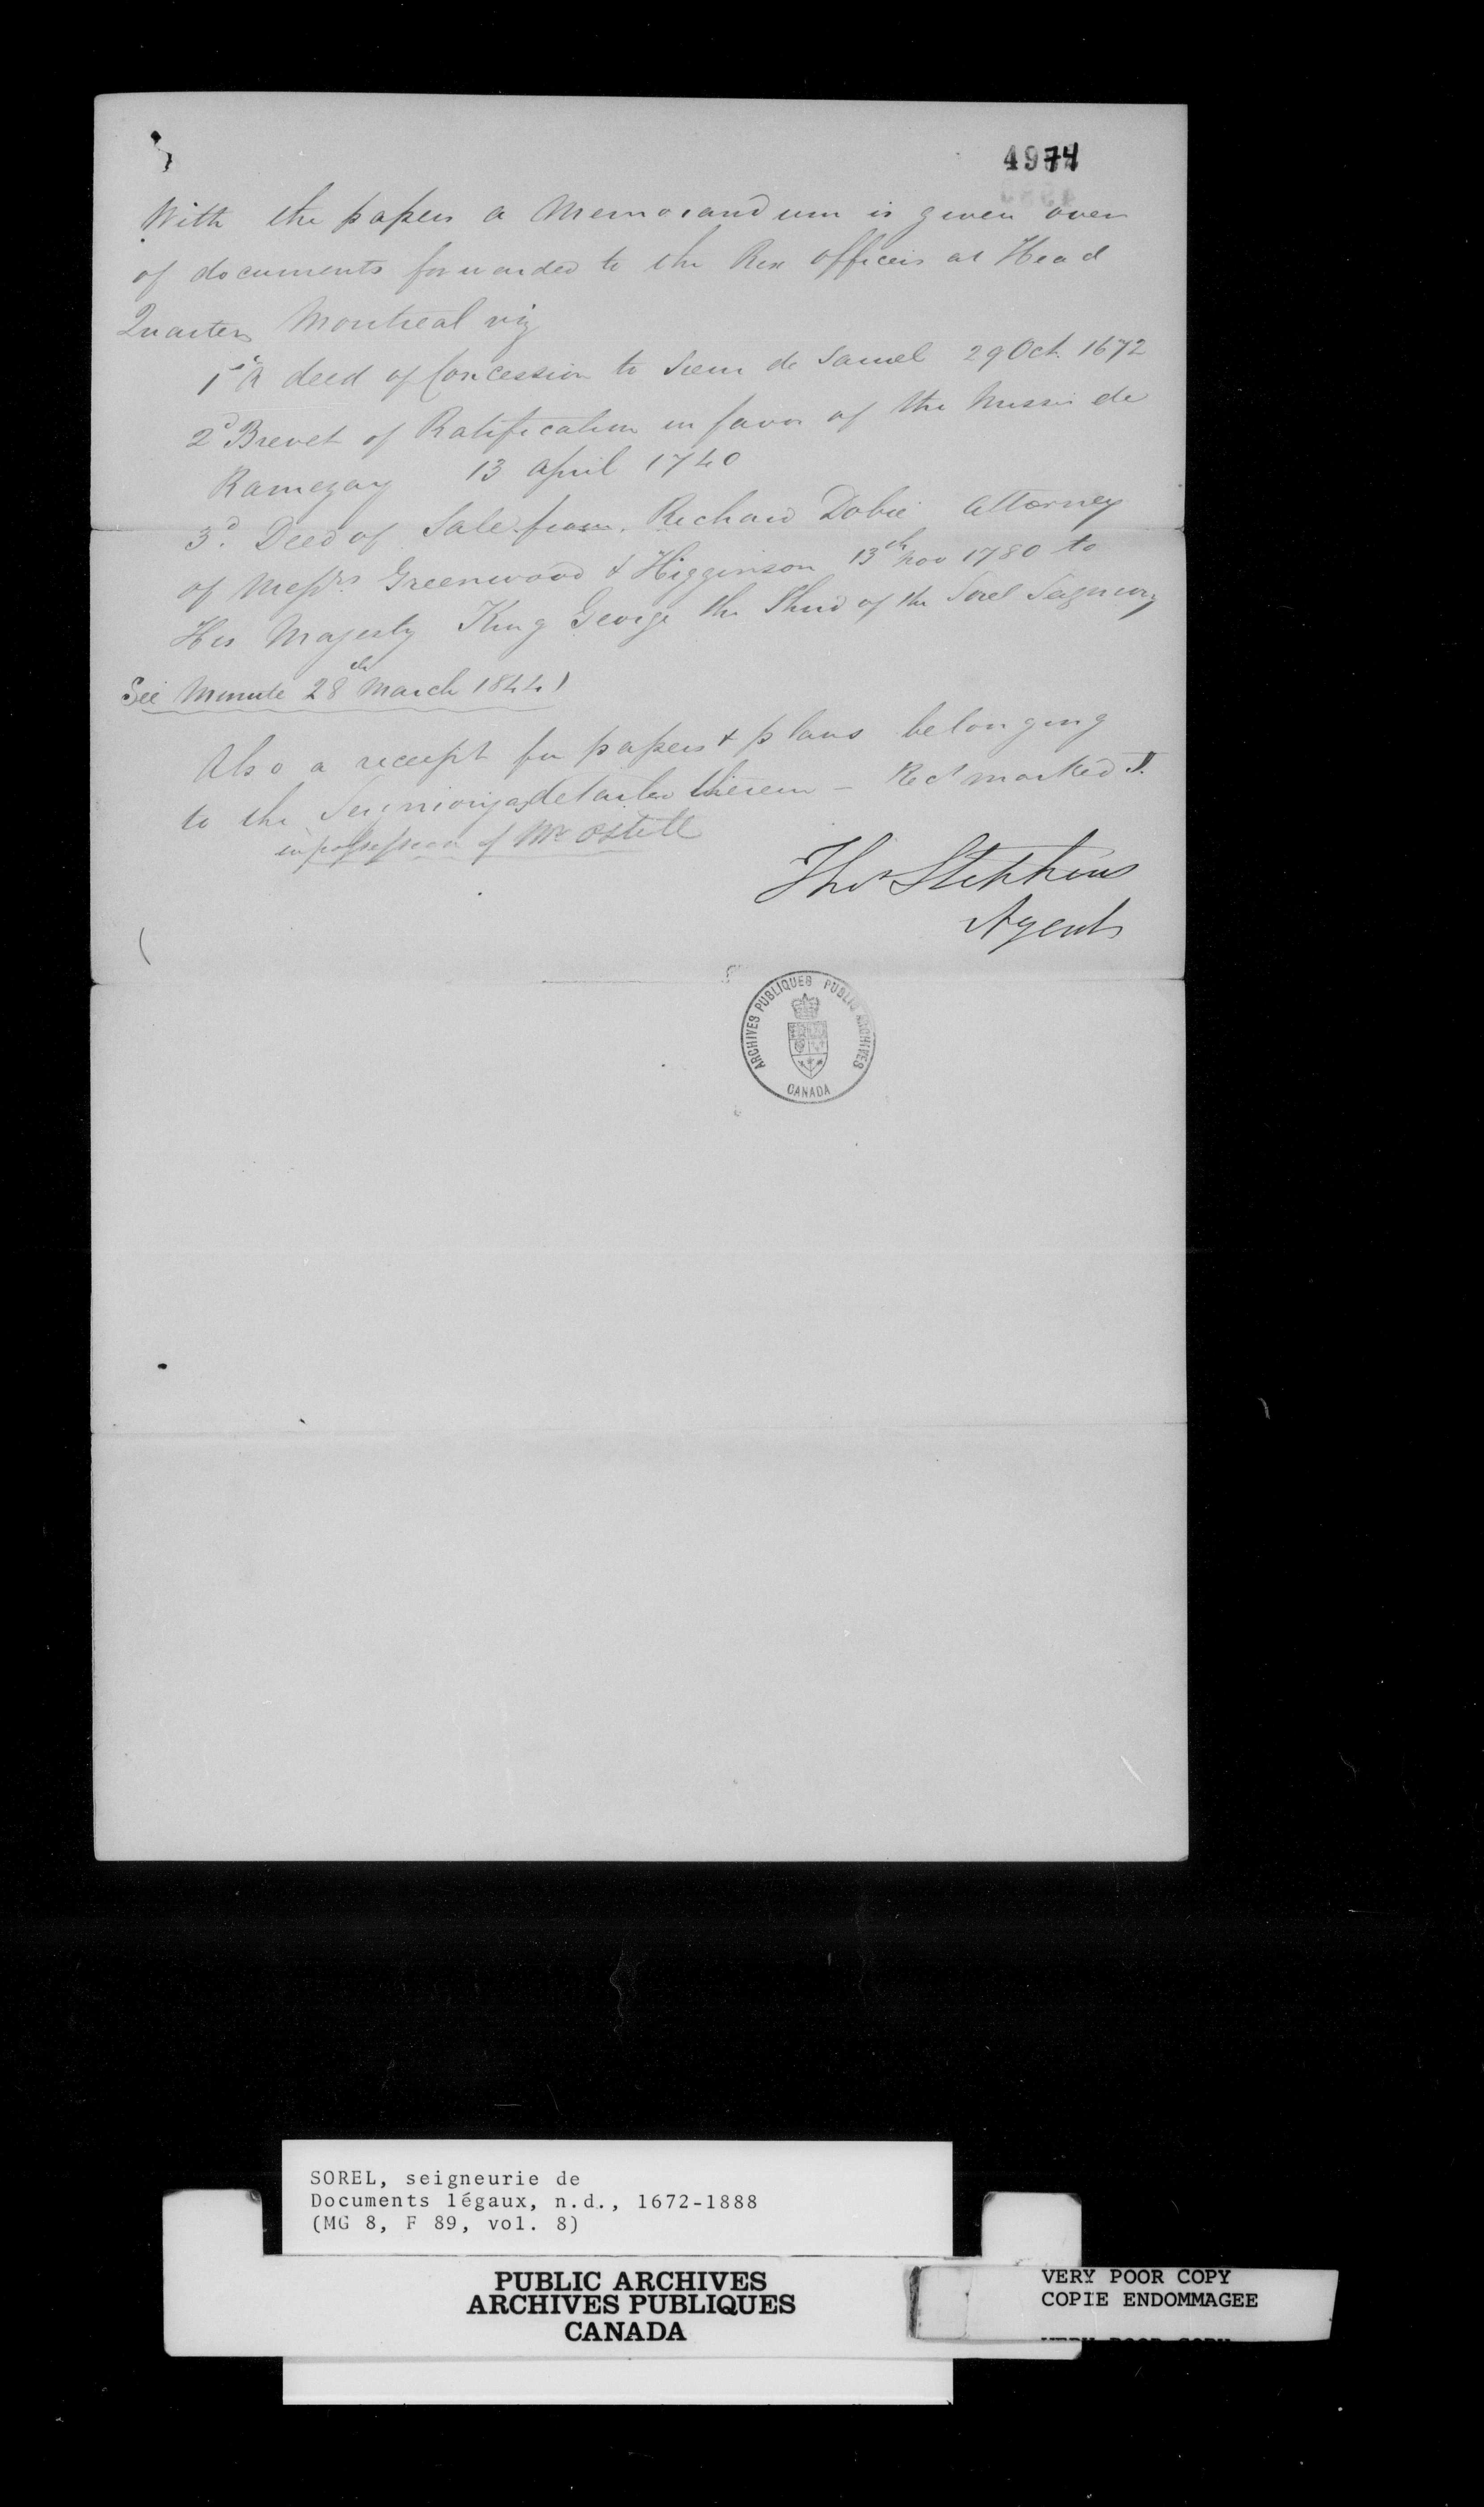 4974
With the papers a Memorandum is given over
of documents forwarded to the Res officers at Head
Quarters Montreal viz
1st A deed of Concession to Sieur de Saurel 29 Oct. 1672
2d Brevet of Ratification in favor of the Messrs de
Ramezay 13 April 1740
3d. Deed of Sale from Richard Dobie Attorney
of Messrs. Greenwood & Higginson 13th Nov 1780 to
His Majesty King George the Third of the Sorel Seigniory
See Minute 28th March 1844)
Also a receipt for papers & plans belonging
to the Seigniory as detailed therein – Rect marked
in possession of Mr Ostell
Thos Stephens
Agent
ARCHIVES PUBLIQUES PUBLIC ARCHIVES
CANADA
SOREL, seigneurie de
Documents légaux, n.d., 1672-1888
(MG 8, F 89, vol. 8)
PUBLIC ARCHIVES
ARCHIVES PUBLIQUES
CANADA
VERY POOR COPY
COPIE ENDOMMAGEE
VERY POOR COPY